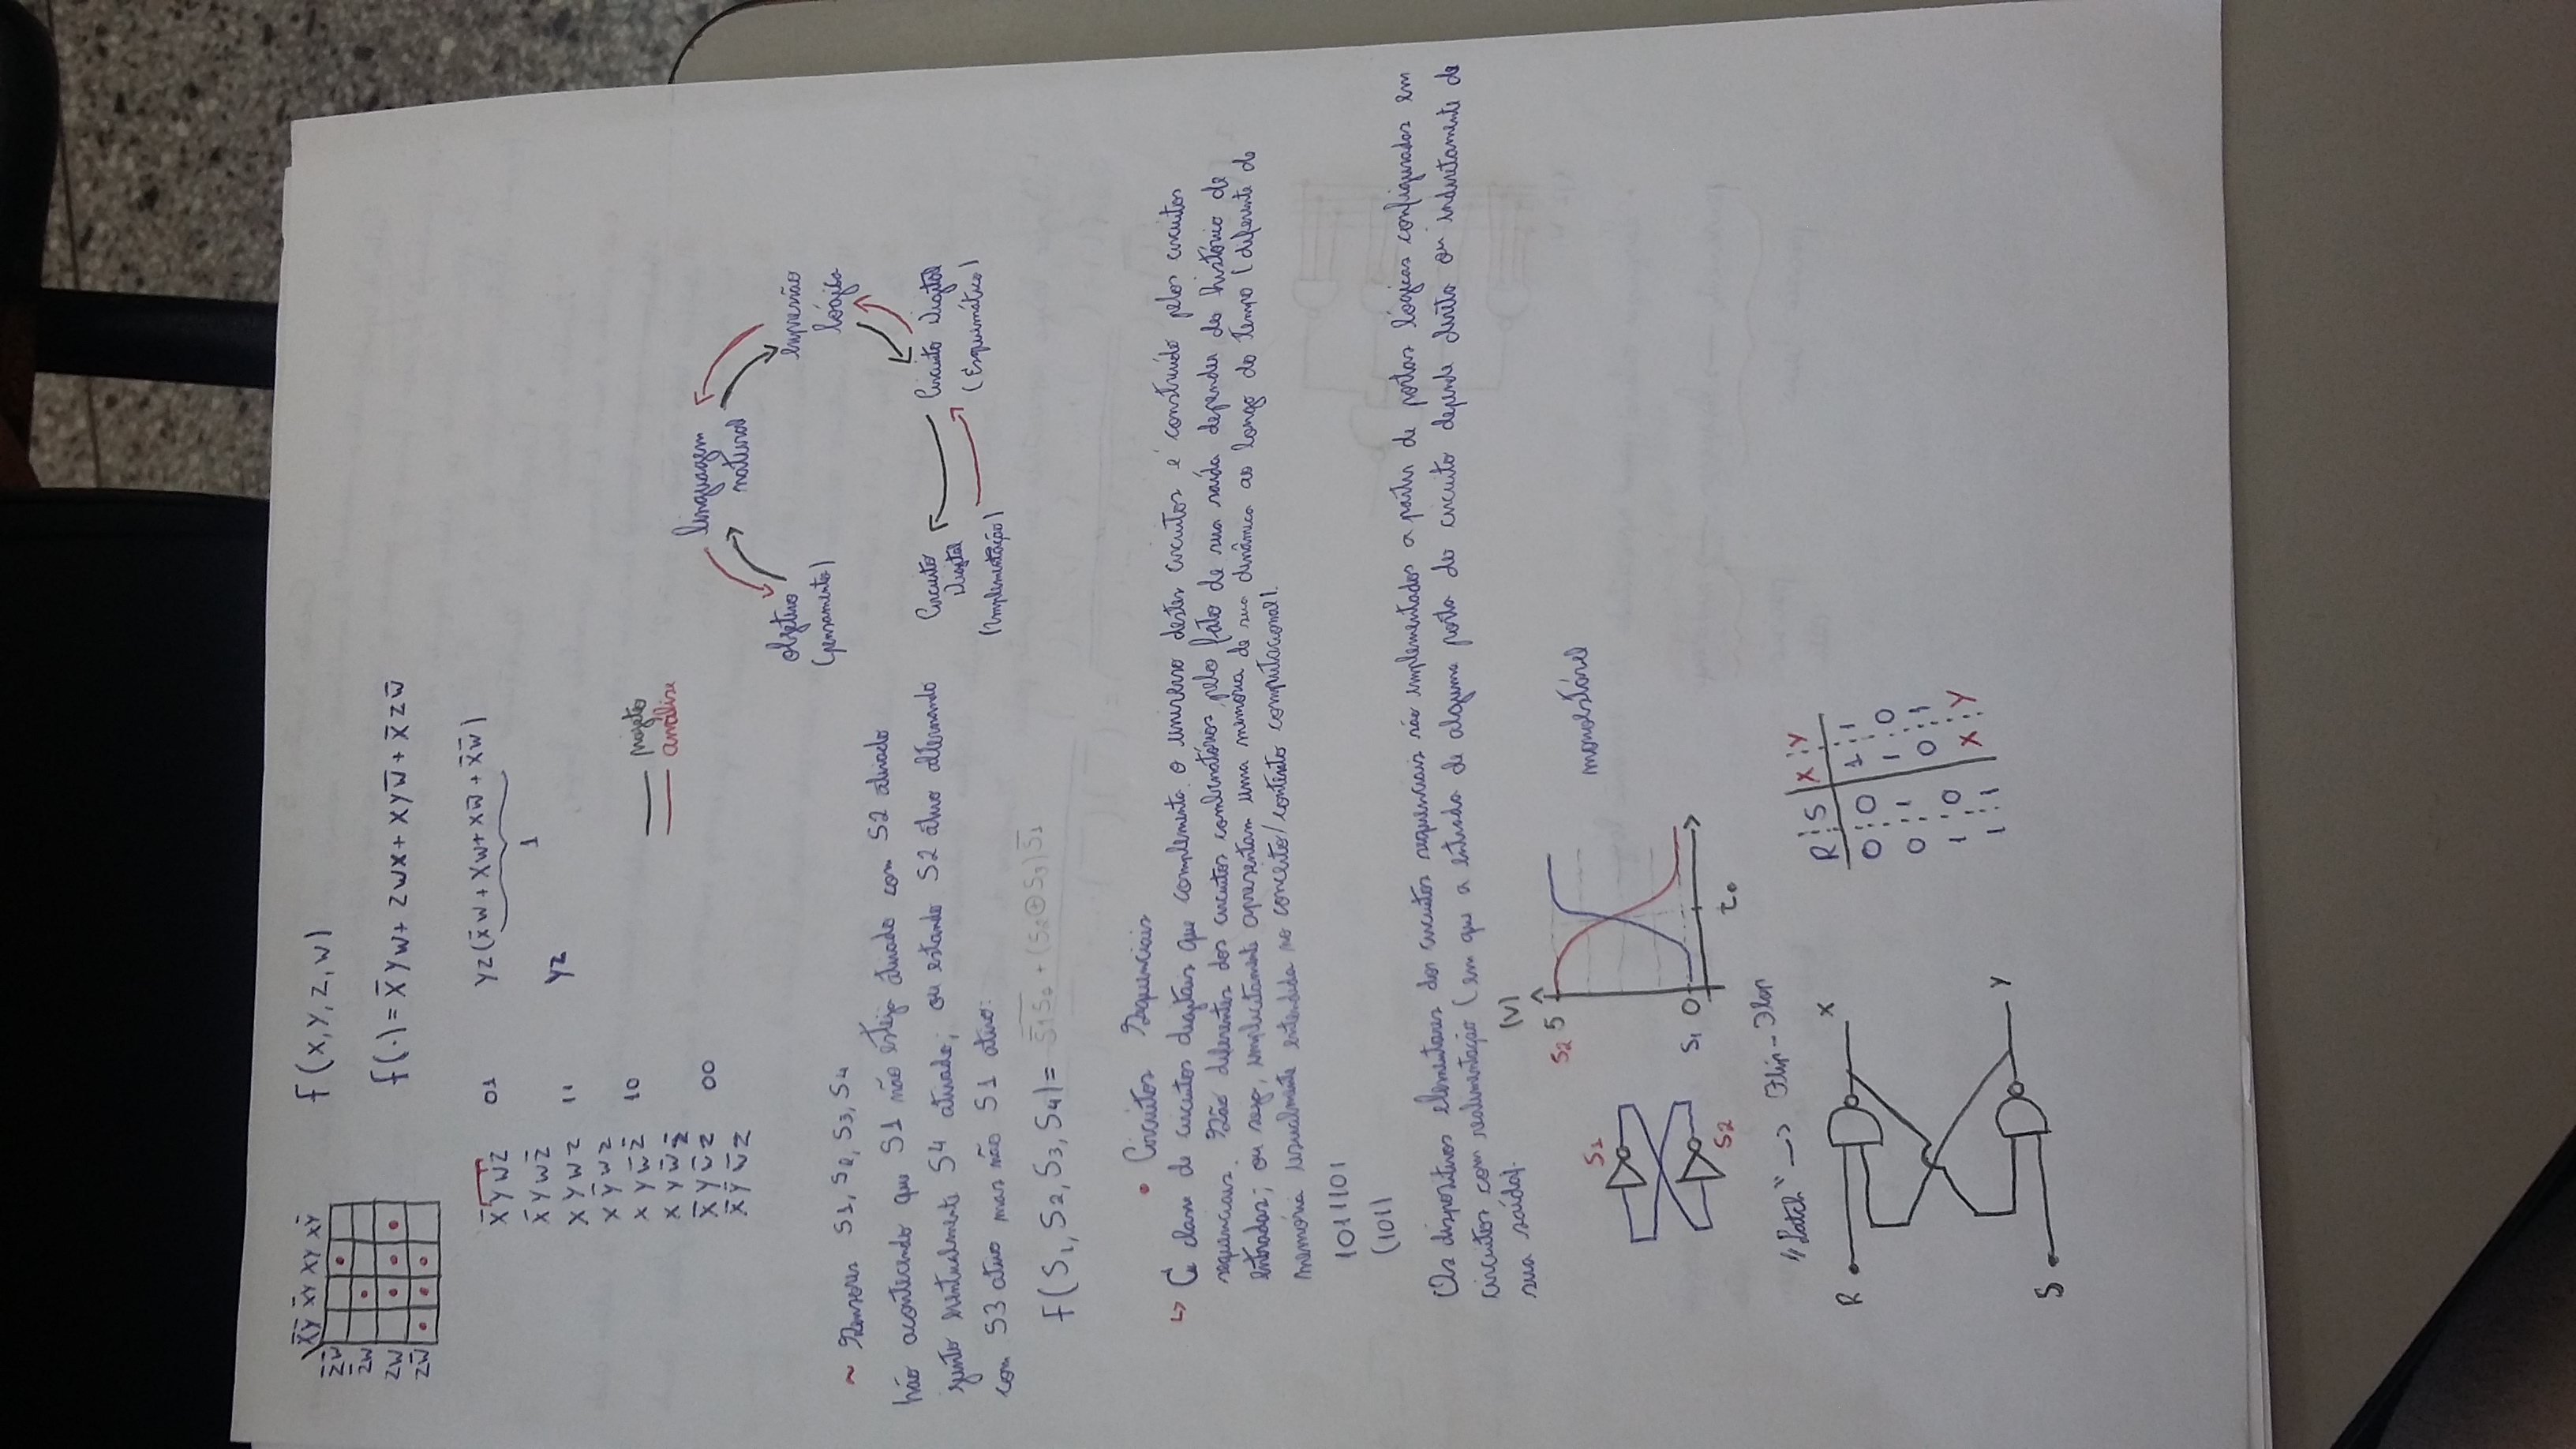 X̄Ȳ X̄Y XY XȲ
Z̄W̄
Z̄W
ZW
ZW̄
f(X,Y,Z,W)
f(·) = X̄YW + ZWX + XYW̄ + X̄ZW̄
X̄YWZ 01
X̄YWZ̄
XYWZ 11
XȲWZ
XYW̄Z̄ 10
XYW̄Z̄
X̄YW̄Z 00
X̄ȲW̄Z
YZ(X̄W + XW + XW̄ + X̄W̄)
1
YZ
projeto
análise
linguagem
natural
objetivo
(pensamento)
expressão
lógica
Circuito Digital
(Esquemático)
Circuito
Digital
(Implementação)
~ Sensores S1, S2, S3, S4
Não acontecendo que S1 não esteja ativado com S2 ativado
junto eventualmente S4 ativado; ou estando S2 ativo alternando
com S3 ativo mas não S1 ativo:
F(S1, S2, S3, S4) = S̄1S2 + (S2⊕S3)S̄1
• Circuitos Sequenciais
↳ A classe de circuitos digitais que complementa o universo destes circuitos é construído pelos circuitos
sequenciais. São diferentes dos circuitos combinatórios pelo fato de sua saída depender do histórico de
entradas; ou seja, implicitamente apresentam uma memória de sua dinâmica ao longo do tempo (diferente de
memória usualmente entendida no conceito/contexto computacional).
1011101
(101)
Os dispositivos elementares dos circuitos sequenciais são implementados a partir de portas lógicas configuradas em
circuitos com realimentação (em que a entrada de alguma porta do circuito depende direta ou indiretamente de
sua saída).
S1
S2
(V)
S2 5
S1 0
t0
monoestável
"Latch" → Flip-Flop
R
X
S
Y
R S X Y
0 0 1 1
0 1 1 0
1 0 0 1
1 1 X Y